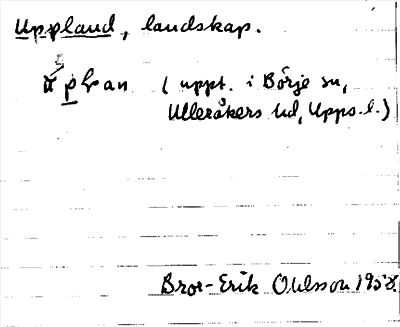 Uppland, landskap.
(uppt. i Börje sn,
Ulleråkers hd, Upps. l.)
Bror-Erik Ohlsson 1958.